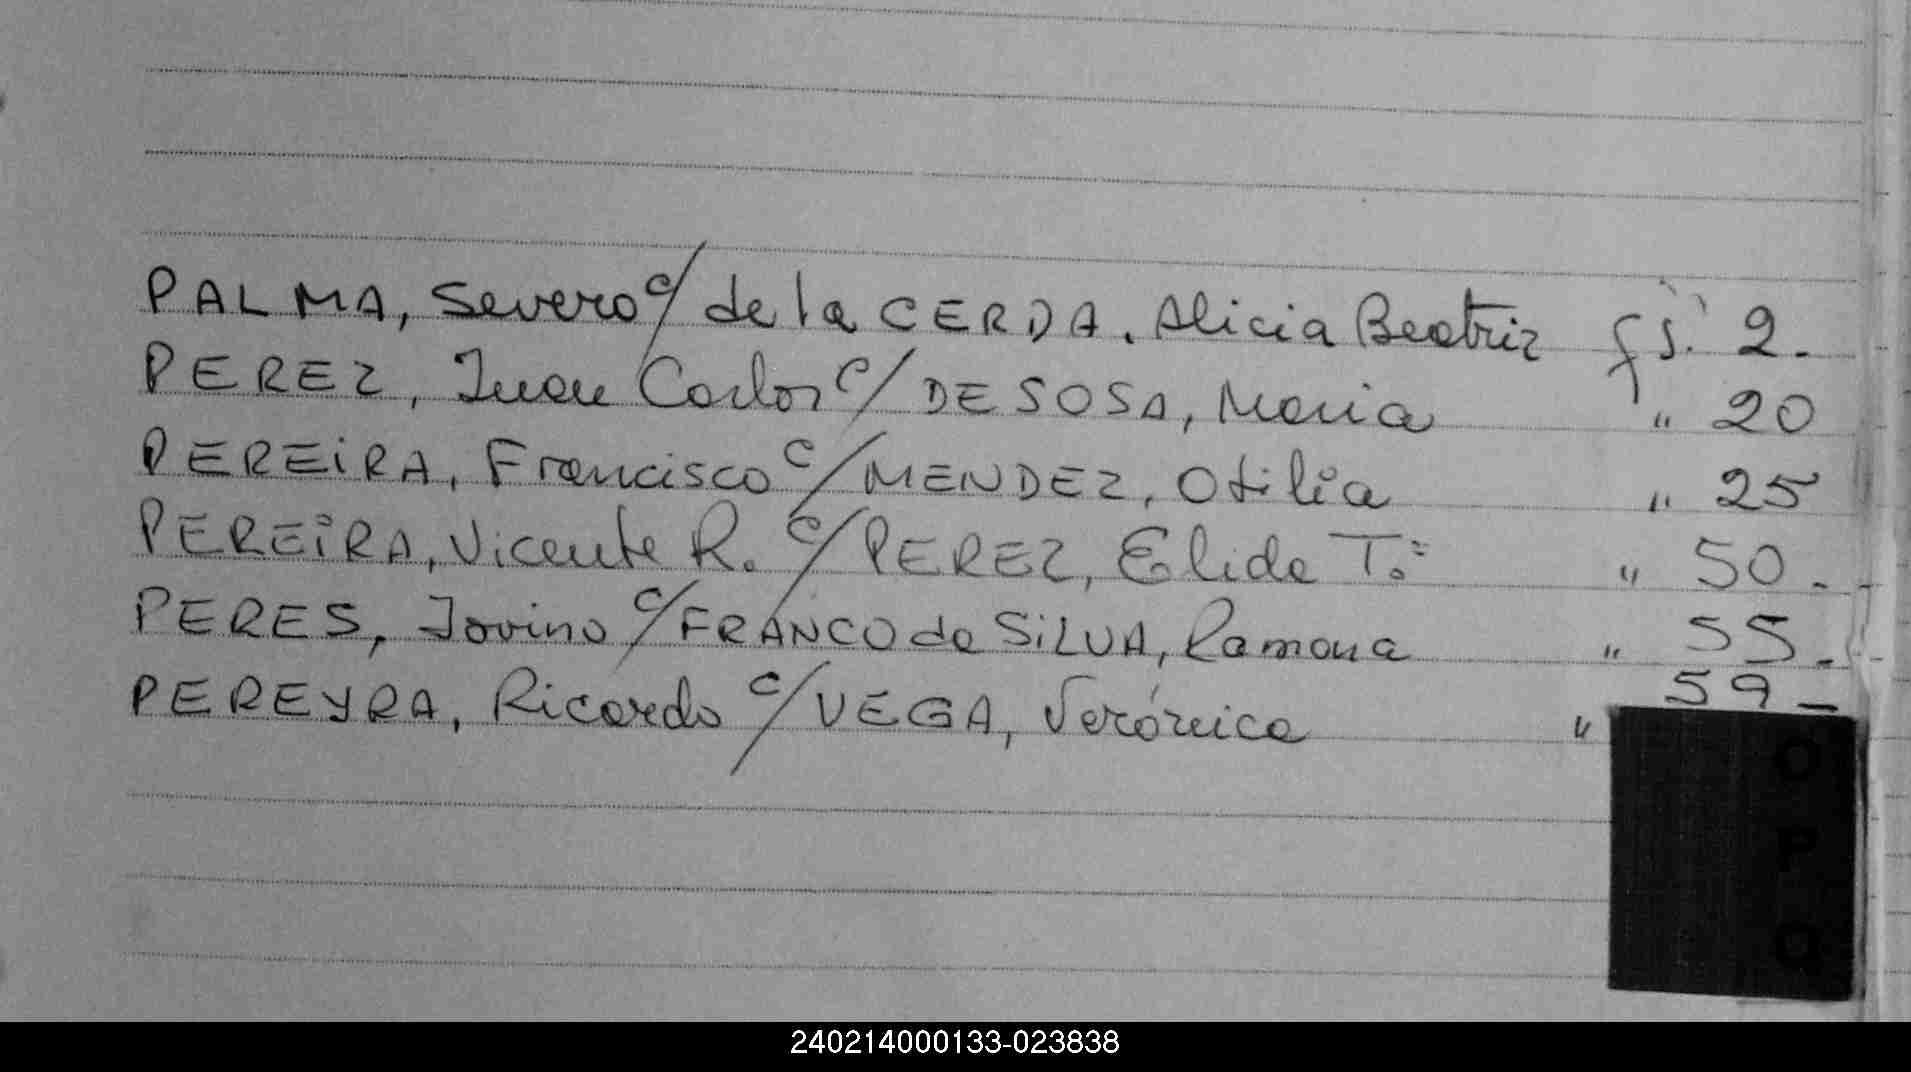 PALMA, Severo c/ de la CERDA. Alicia Beatriz fs. 2.
PEREZ, Juan Carlos c/ DE SOSA, Maria " 20
PEREIRA, Francisco c/ MENDEZ, Otilia " 25
PEREIRA, Vicente R. c/ PEREZ, Elida T. " 50.-
PERES, Jovino c/ FRANCO de SILVA, Ramona " 55.-
PEREYRA, Ricardo c/ VEGA, Verónica " 59-
O
P
Q
240214000133-023838